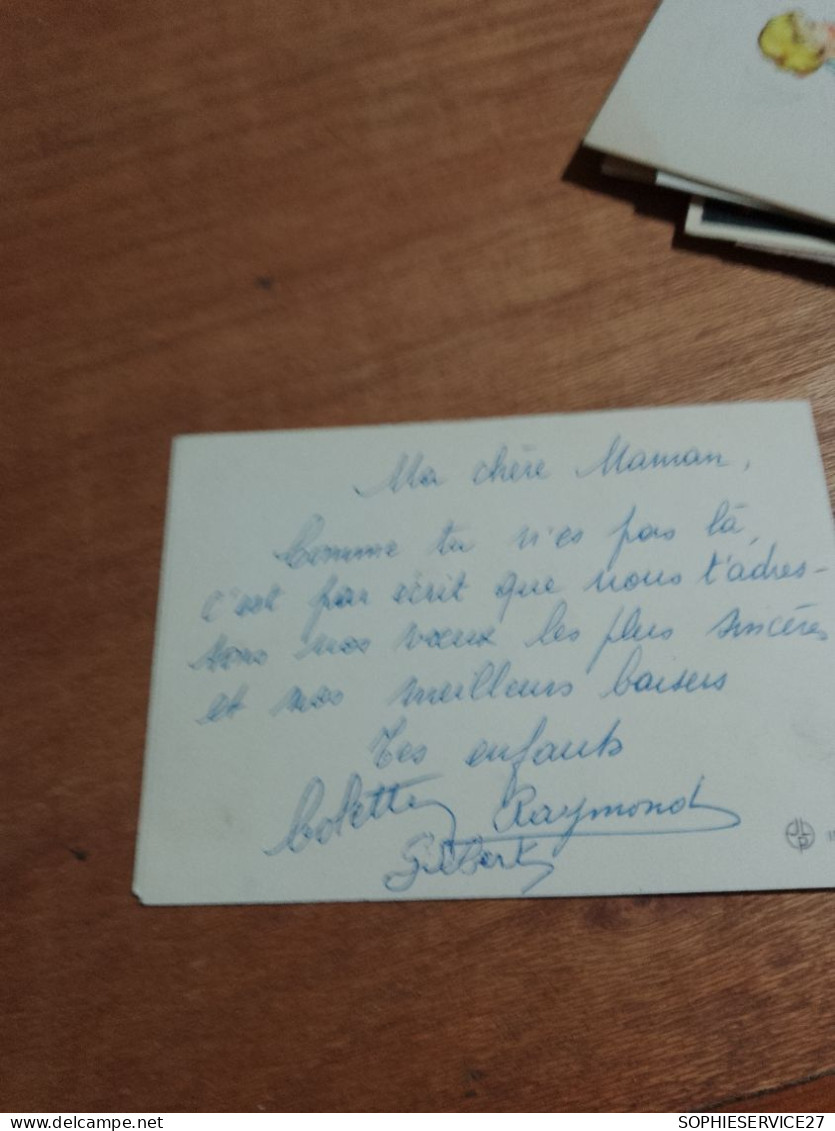 Ma chère Maman,
Comme tu n'es pas là,
c'est par écrit que nous t'adres-
sons nos vœux les plus sincères
et nos meilleurs baisers
Tes enfants
Colette Raymond
Gilbert
JLP
SOPHIESERVICE27